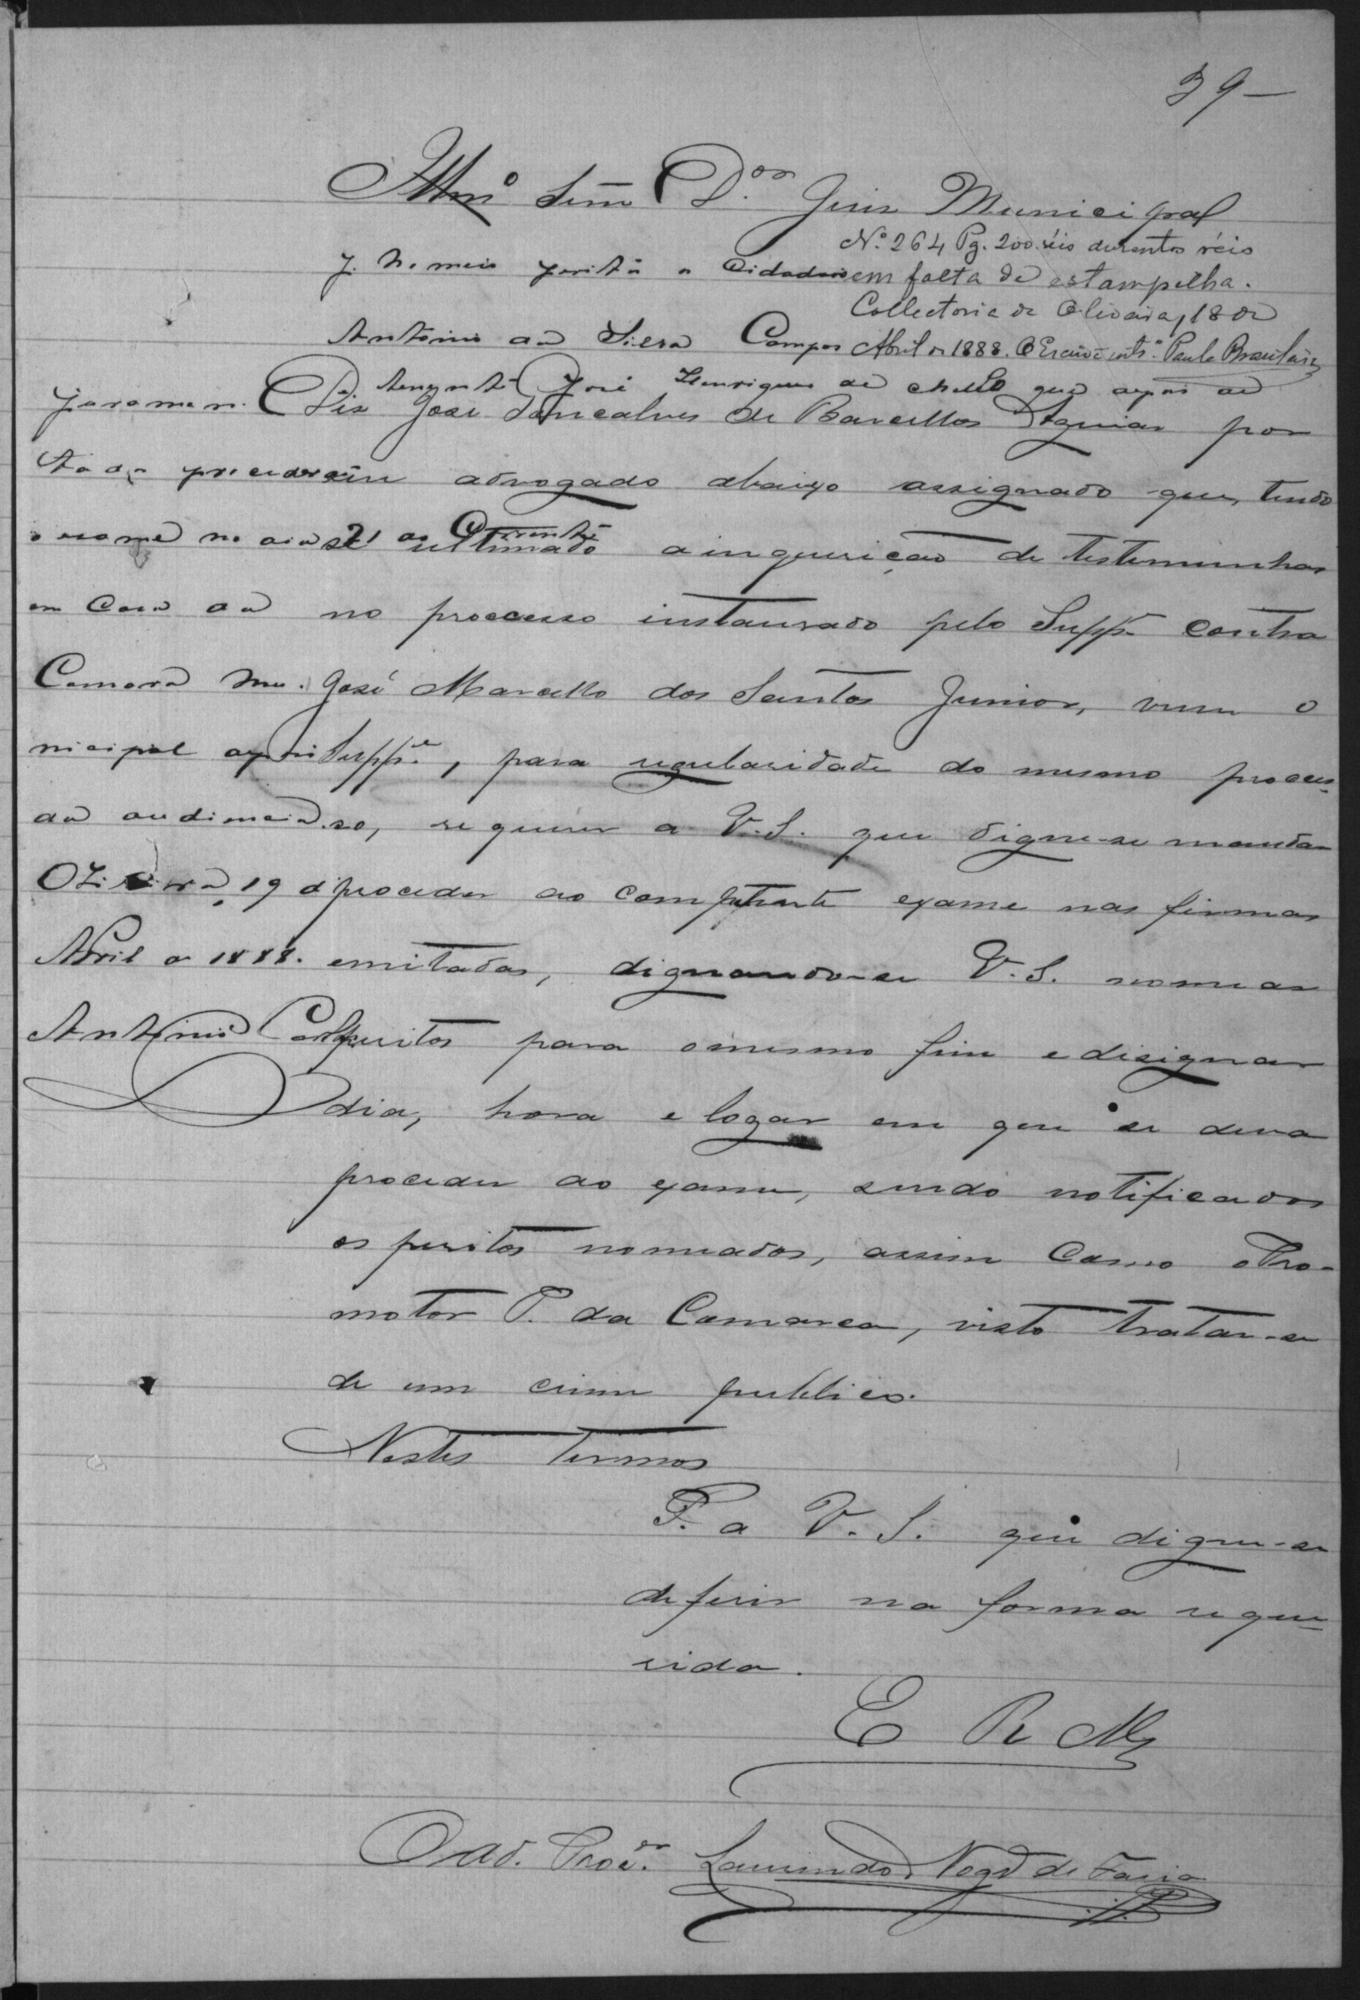 39
Illmº Senr Dor. Juis Municipal
Nº 264 Pg. 200 réis dusentos réis
em falta de estampilha.
Collectoria de Oliveira, 18 de
Abril de 1888. O Escrivão intº Paulo Brasileiro
J. Nomeio peritos o Cidadão
Antonio da Silva Campos
e tenente José Henriques de Mello que apos de
juramen-
tados procederão
o exame no dia 21 do Corrente
em Casa da
Camara Mu-
nicipal apos
da audiencia.
Oliveira, 19 de
Abril de 1888.
Antonio Campos
Diz José Gonçalves de Barcellos Aguiar por
seu advogado abaixo assignado que, tendo
se ultimado a inquerição de testemunhas
no processo instaurado pelo Suppe. contra
José Marcello dos Santos Junior, vem o
Suppe., para regularidade do mesmo proces-
so, requerer a V.S. que digne-se mandar
proceder ao competente exame nas firmas
emitadas, dignando-se V.S. nomear
peritos para o mesmo fim e disignar
dia, hora e logar em que se deva
proceder ao exame, sendo notificados
os peritos nomeados, assim como o Pro-
motor P. da Comarca, visto tratar-se
de um crime publico.
Nestes termos
P. a V. S. que digne-se
deferir na forma reque-
rida.
E R M
O Ad. Procor. Laurindo Nogra de Faria